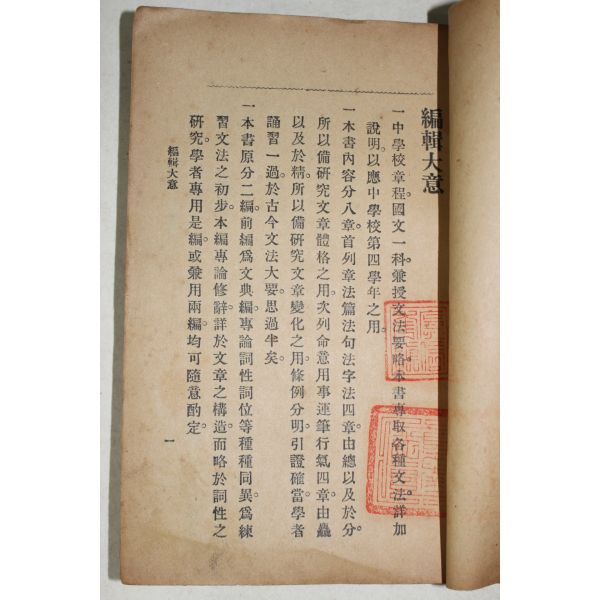 編輯大意
一中學校章程。國文一科。兼授文法要略。本書專取各種文法。詳加
說明。以應中學校第四學年之用。
一本書內容分八章。首列章法篇法句法字法四章。由總以及於分。
所以備研究文章體格之用。次列命意用事運筆行氣四章。由麤
以及於精。所以備研究文章變化之用。條例分明。引證確當。學者
誦習一過。於古今文法大要。思過半矣。
一本書原分二編。前編爲文典編。專論詞性詞位等種種同異。爲練
習文法之初步。本編專論修辭。詳於文章之構造。而略於詞性之
研究。學者專用是編。或兼用兩編。均可隨意酌定。
編輯大意
一